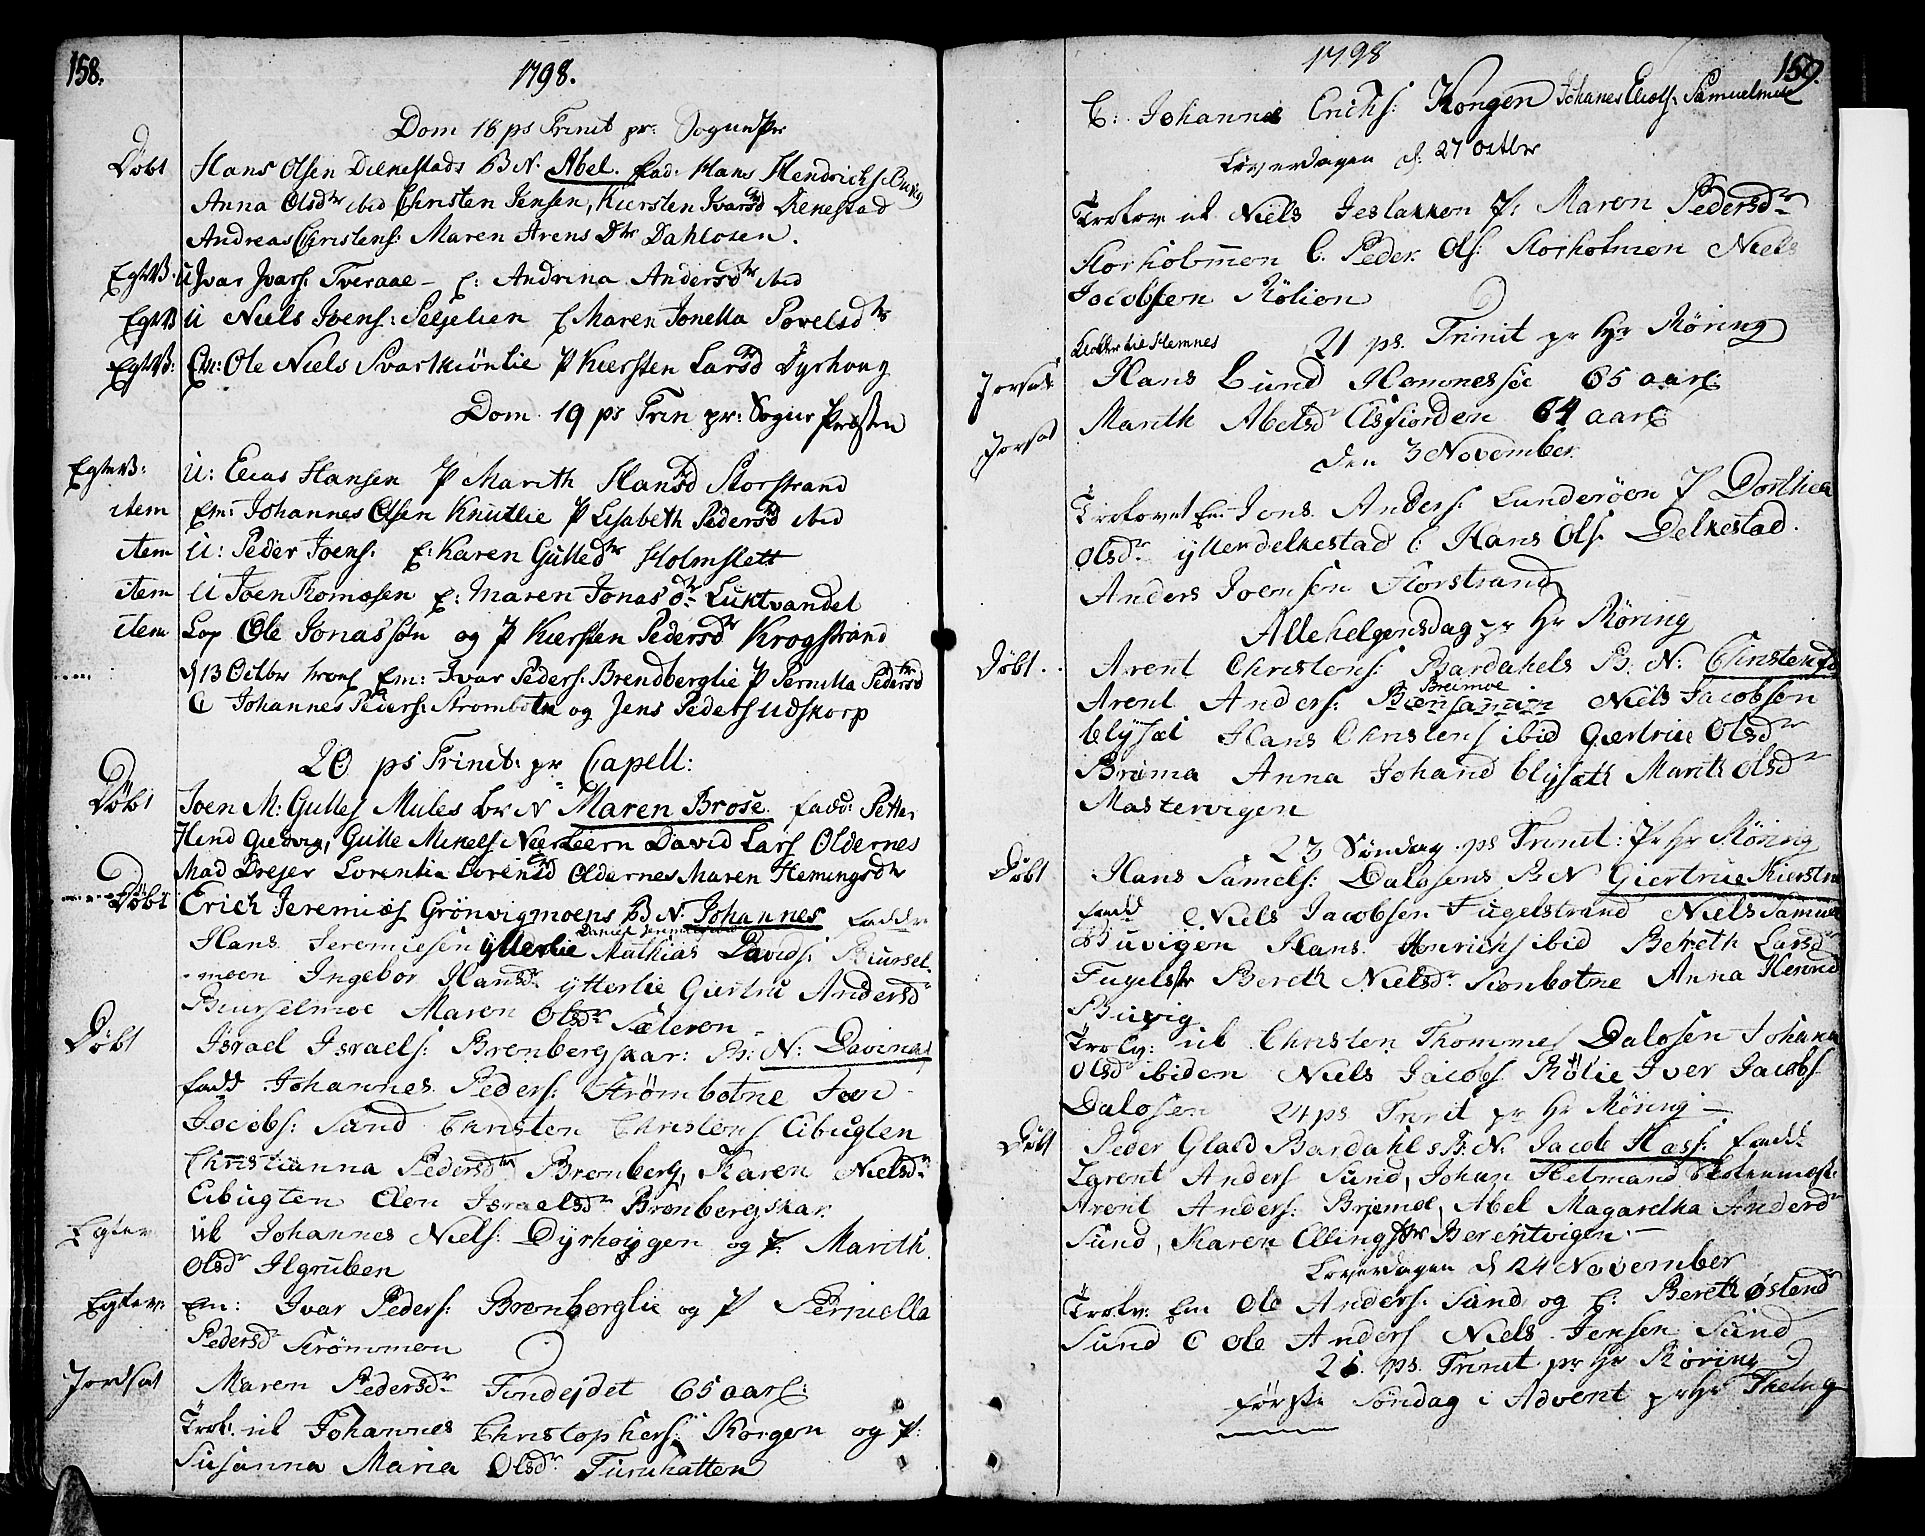 158.
1798.
Dom 18 ps Trinit pr: Sogne Pr
Døbt Hans Olsen Dilkestads B N. Abel. fad: Hans Hendrichs Buvig
Anna Olsdtr ibid Christen Jensen, Kiersten Ivarsd Delkestad
Andreas Christens: Maren Arens Dtr Dahlosen.
EgtV: U Ivar Ivars: Tveraae - E: Andrina Andersdtr ibid
EgtV U Niels Joens: Seljelien E Maren Jonella Povelsdtr
EgtV: Em: Ole Niels Svartkiønlie P Kiersten Larsd Dyrhoug
Dom 19 ps Trin pr: Sogne Presten
EgteV: U: Elias Hansen P Marith Hansd Storstrand
item Em: Johannes Olsen Knutlie P Lisabeth Pedersd ibid
item U: Peder Joens: E: Karen Gulledtr Holmslett
item U Joen Thomesen E: Maren Jonas dtr Luktvandet
item Em Ole Jonassøn og P Kiersten Pedersdtr Krogstrand
d 13 Octbr trol Em: Ivar Peders: Brendberglie P Pernilla Pedersd
C Johannes Peders: Strombotn og Jens Peders Udskorp
20 ps Trinit: pr Capell:
Døbt Joen M: Gulles Mules br N Maren Brose. fadd: Petter
Hend Gudvig, Gulle Mikels Neerleern David Lars Oldernes
Mad Drejer Lorentia Lorensd Oldernes Maren Hemingsdtr
Døbt Erich Jeremies Grönvigmoens B N: Johannes faddr
Daniel Jeremiesen
Hans Jeremiesen ytterlie Mathias Davids: Biursel-
moen Ingebor Hansdr ytterlie Giertru Andersdr
Biurselmoe Maren Olsdr Sæteren -
Døbt Israel Israels: Brenbergskar: B: N: Davina
fadd Johannes Peders: Strømbotne Joen
Jocobs: Sand Christen Christens Eibugten
Christianna Pedersdtr Brenberg, Karen Nielsdr
Eibugten Elen Israelsdr Brenbergskar
Egter Uk Johannes Niels: Dyrhøygen og P: Marith
Olsdr Ilgruben
Egter: Em: Ivar Peders: Brenberglie og P Perniella
Pedersdr Strömmen
Jordsat Maren Pedersdr Findejdet 65 aar:
Trol: uk Johannes Christophers: Korgen og P:
Susanna Maria Olsdr Turnhatten
1798
159.
C: Johannes Erichs: Kongen Johanes Eliots: Samuelmoe
Løverdagen d: 27 Octbr
Trolov uk Niels Jeslaksen P: Maren Pedersdr
Storholmen C. Peder Ols: Storholmen Niels
Jocobsen Rölien
21 ps. Trinit pr Hr Møring
Klokker til Hemnes
Jorsat Hans Lund Hemnesøe 65 aar
Jorsat Marith Abelsd Elsfiorden 64 aar
den 3 November
Trolovet Em Jons Anders: Lunderöen P Dorthea
Olsdr ytterdelkestad C Hans Ols: Delkestad.
Anders Joensen Storstrand
Allehelgensdag pr Hr Møring
Døbt. Arent Christens: Bardahels B: N: Christen fd
Breimoe
Arent Anders: Niels Jacobsen
blysæt Hans Christens ibid Giertrue Olsdr
Breima Anna Johand blysæth Marith Olsd
Mastervigen
23 Søndag ps Trinit: Pr Hr Møring
Døbt Hans Samels: Dalosens B N Giertrue Kierstin
fadd Niels Jacobsen Fugelstrand Niels Samuels
Buvigen Hans Henrichs ibid Bereth Larsdr
Fugelstr Bereth Nielsdr Sionbotne Anna Henrid
Buvig
Trolv: uk Christen Thommes Dalosen Johann
Olsd ibiden Niels Jacobs Rölie Iver Jacobs
Dalosen 24 ps Trinit pr Hr Møring
Døbt Peder Glad Bardahls B: N. Jacob Hass: fadd:
Larent Anders Sund, Johan Helmand Skolemest:
Arent Anders: Briemoe, Abel Magaretha Anderd
Sund, Karen Ellings dtr Berentvigen. -
Løverdagen d 24 November
Trolv: Em Ole Anders: Sund og E: Bereth Østend
Sund C Ole Anders Niels Jensen Sund
26. ps. Trinit pr Hr Møring
første Søndag i Advent pr Hr Thelug